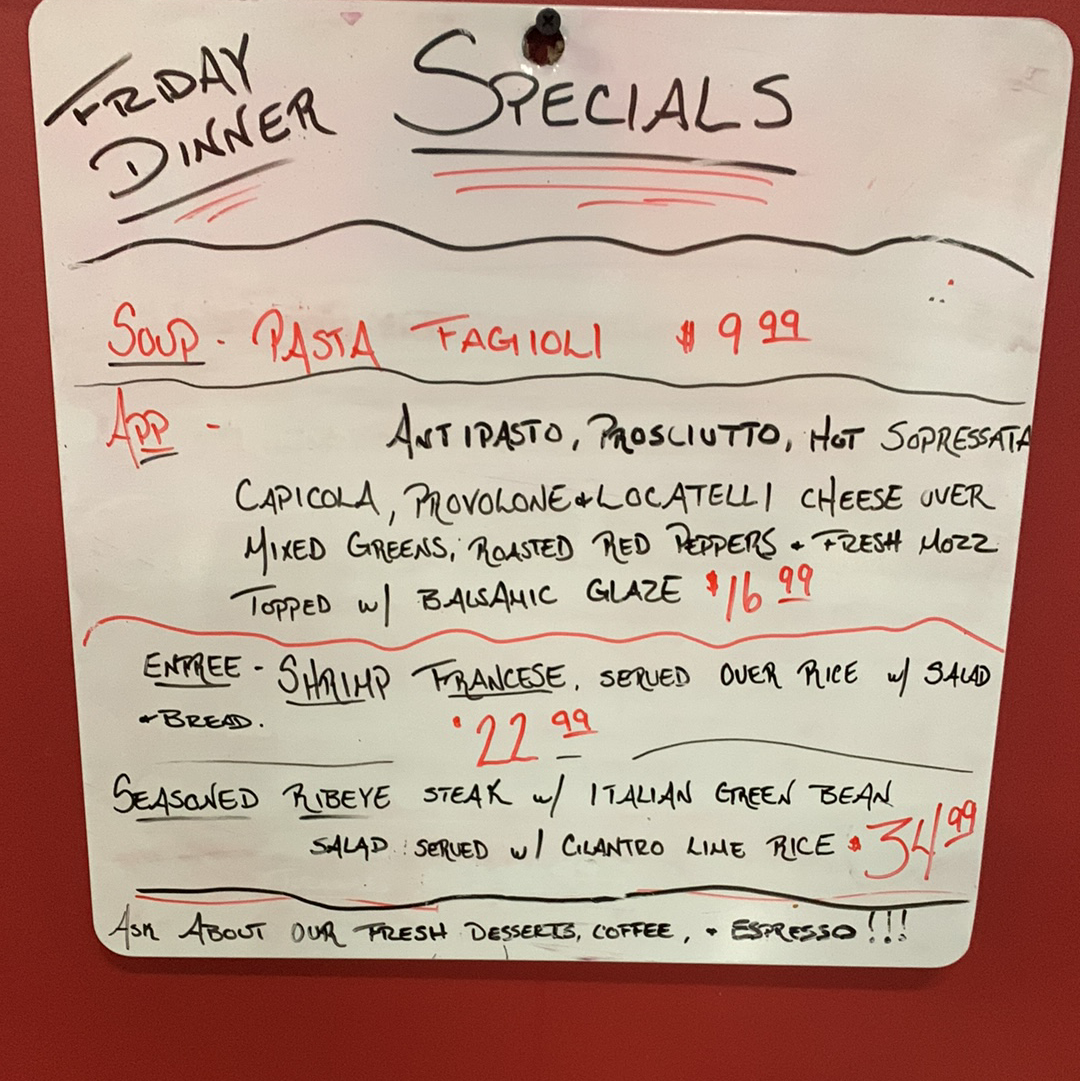 FRIDAY
DINNER
SPECIALS
SOUP - PASTA FAGIOLI $9 99
APP - ANTIPASTO, PROSCIUTTO, HOT SOPRESSATA
CAPICOLA, PROVOLONE & LOCATELLI CHEESE OVER
MIXED GREENS, ROASTED RED PEPPERS & FRESH MOZZ
TOPPED W/ BALSAMIC GLAZE $16 99
ENTREE - SHRIMP FRANCESE, SERVED OVER RICE W/ SALAD
& BREAD. $22 99
SEASONED RIBEYE STEAK W/ ITALIAN GREEN BEAN
SALAD SERVED W/ CILANTRO LIME RICE $34 99
ASK ABOUT OUR FRESH DESSERTS, COFFEE, & ESPRESSO!!!